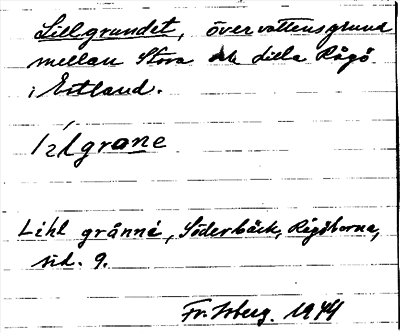 Lillgrundet, övervattensgrund
mellan Stora och Lilla Rågö
i Estland.
Lihl grånne, Söderbäck, Rågöborna,
sid. 9.
Fr. Isberg. 1944